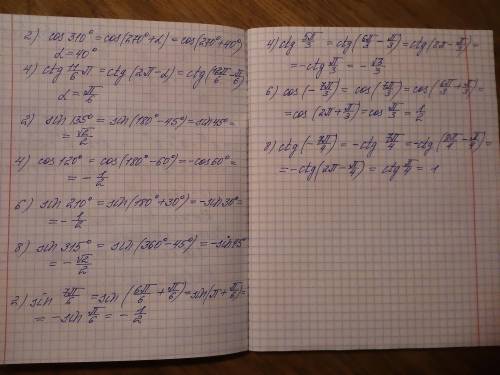 2) cos 310° = cos(270°+α) = cos(270°+40°)
α = 40°
4) ctg 11/6 π = ctg(2π-α) = ctg(12π/6 - π/6)
α = π/6
2) sin 135° = sin(180°-45°) = sin 45° =
= √2/2
4) cos 120° = cos(180°-60°) = -cos 60° =
= -1/2
6) sin 210° = sin(180°+30°) = -sin 30° =
= -1/2
8) sin 315° = sin(360°-45°) = -sin 45°
= -√2/2
2) sin 7π/6 = sin(6π/6 + π/6) = sin(π + π/6) =
= -sin π/6 = -1/2
4) ctg 5π/3 = ctg(6π/3 - π/3) = ctg(2π - π/3) =
= -ctg π/3 = -√3/3
6) cos(-7π/3) = cos(7π/3) = cos(6π/3 + π/3) =
= cos(2π + π/3) = cos π/3 = 1/2
8) ctg(-7π/4) = -ctg 7π/4 = -ctg(8π/4 - π/4) =
= -ctg(2π - π/4) = ctg π/4 = 1